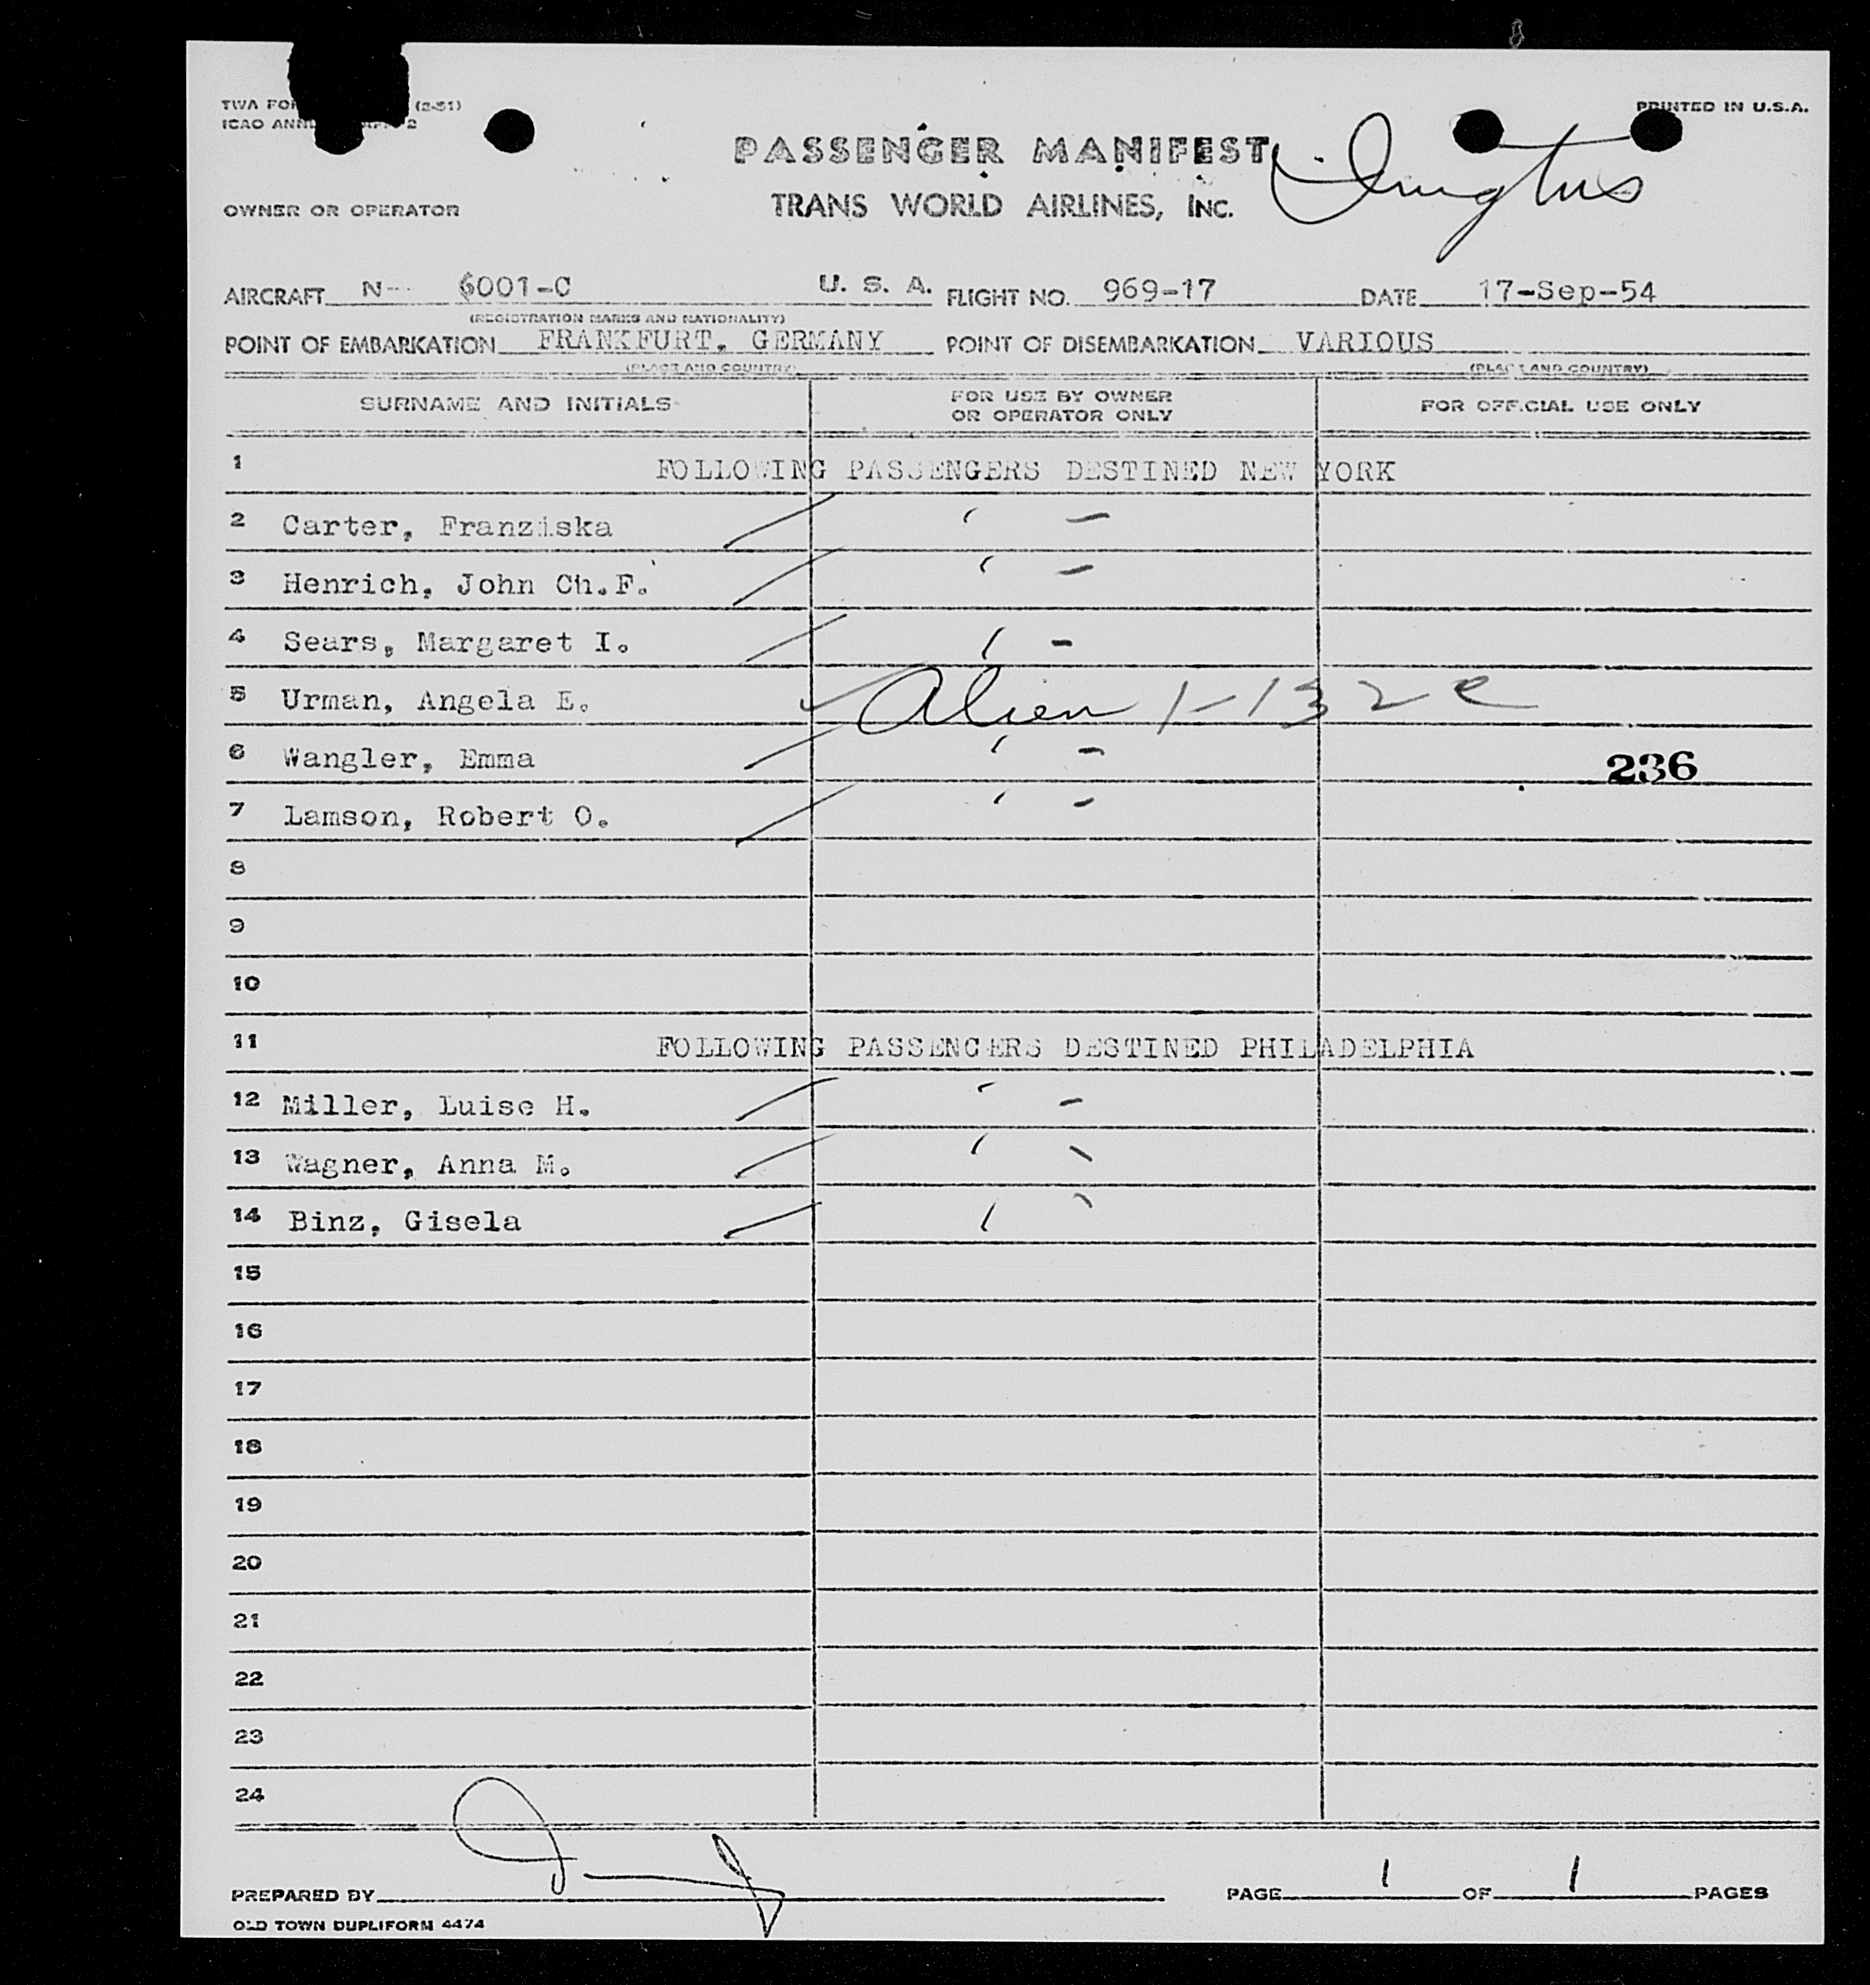 TWA FOR (2-51)
PRINTED IN U.S.A.
ICAO 2
PASSENGER MANIFEST
OWNER OR OPERATOR
TRANS WORLD AIRLINES, INC.
AIRCRAFT N- 6001-C U. S. A. FLIGHT NO. 969-17 DATE 17-Sep-54
(REGISTRATION MARKS AND NATIONALITY)
POINT OF EMBARKATION FRANKFURT, GERMANY POINT OF DISEMBARKATION VARIOUS
(PLACE AND COUNTRY) (PLACE AND COUNTRY)
SURNAME AND INITIALS FOR USE BY OWNER OR OPERATOR ONLY FOR OFFICIAL USE ONLY
1 FOLLOWING PASSENGERS DESTINED NEW YORK
2 Carter, Franziska
3 Henrich, John Ch.F.
4 Sears, Margaret I.
5 Urman, Angela E. Alien 1-132 e
6 Wangler, Emma 236
7 Lamson, Robert O.
8
9
10
11 FOLLOWING PASSENGERS DESTINED PHILADELPHIA
12 Miller, Luise H.
13 Wagner, Anna M.
14 Binz, Gisela
15
16
17
18
19
20
21
22
23
24
PREPARED BY PAGE 1 OF 1 PAGES
OLD TOWN DUPLIFORM 4474